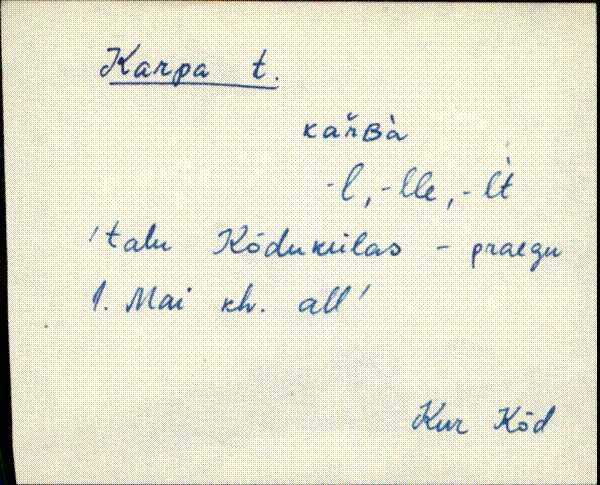 Karpa t.
kař​ʙà
-l, -lle, -lt̀
'talu Kõdukülas - praegu
1. Mai kh. all'
Kur Kõd